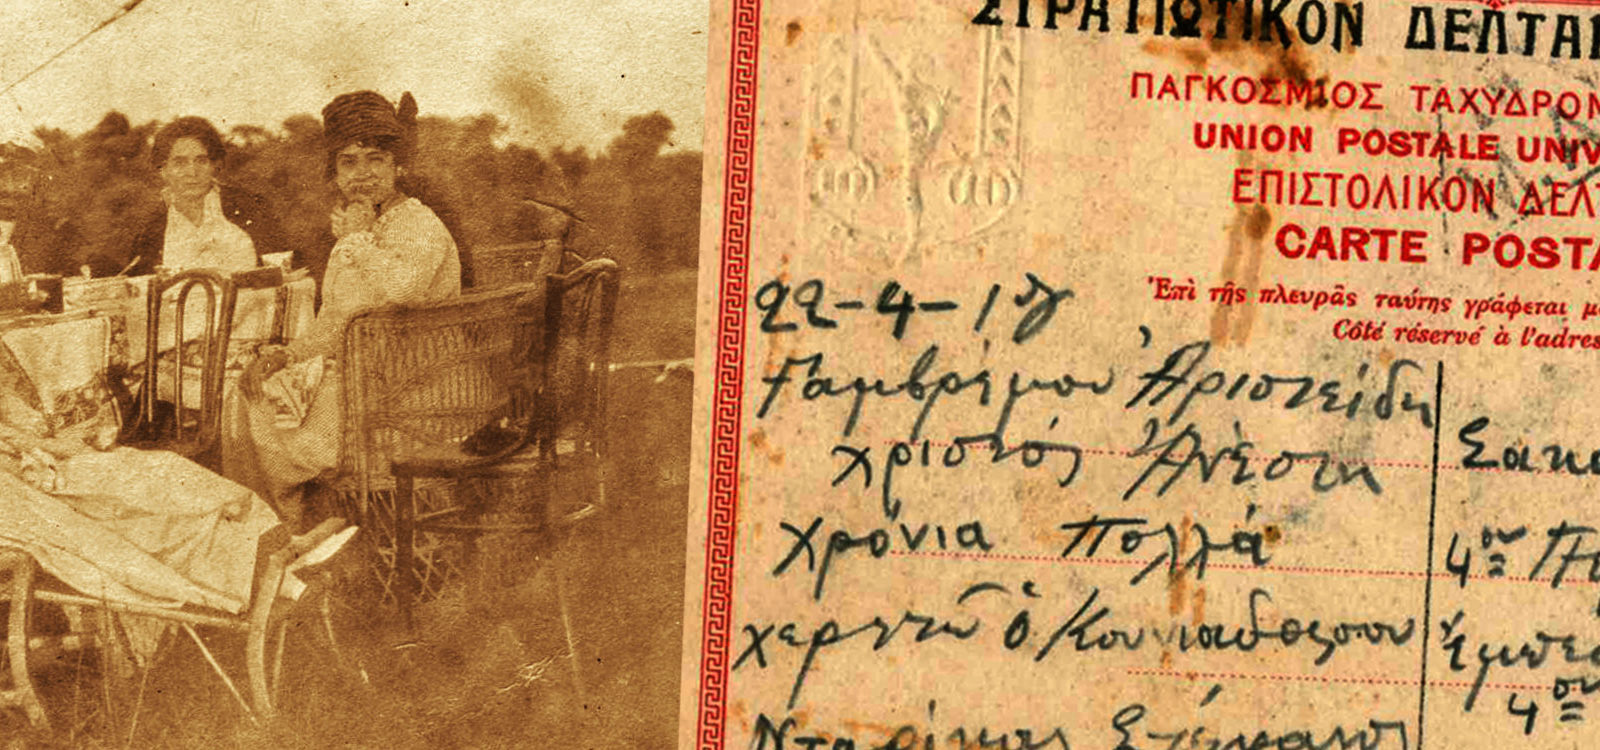 ΣΤΡΑΤΙΩΤΙΚΟΝ ΔΕΛΤΑΡ
ΠΑΓΚΟΣΜΙΟΣ ΤΑΧΥΔΡΟΜ
UNION POSTALE UNIV
ΕΠΙΣΤΟΛΙΚΟΝ ΔΕΛΤ
CARTE POSTA
Ἐπὶ τῆς πλευρᾶς ταύτης γράφεται μο
Côté réservé à l'adres
22-4-1
Γαμβρέ μου Ἀριστείδη
Χριστός Ἀνέστη
Χρόνια Πολλά
Σακ
4ον
4ον